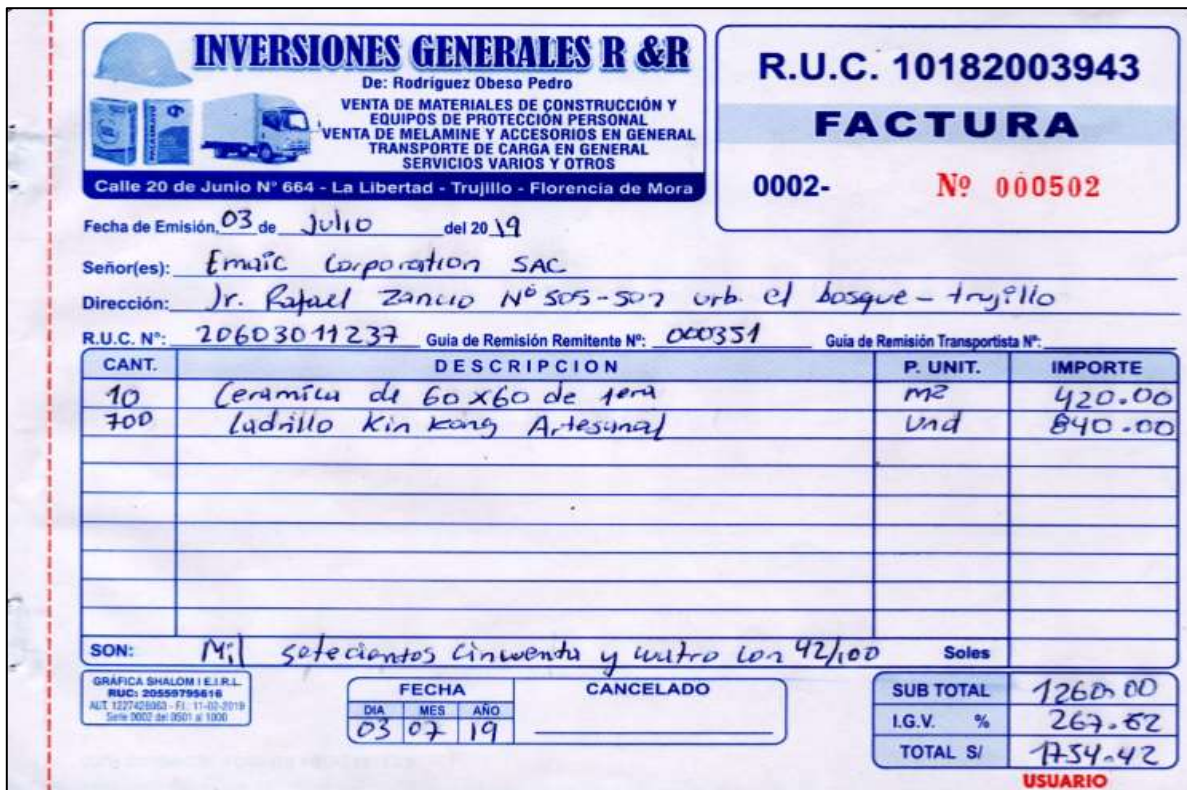 INVERSIONES GENERALES R &R
De: Rodríguez Obeso Pedro
VENTA DE MATERIALES DE CONSTRUCCIÓN Y
EQUIPOS DE PROTECCIÓN PERSONAL
VENTA DE MELAMINE Y ACCESORIOS EN GENERAL
TRANSPORTE DE CARGA EN GENERAL
SERVICIOS VARIOS Y OTROS
Calle 20 de Junio N° 664 - La Libertad - Trujillo - Florencia de Mora
R.U.C. 10182003943
FACTURA
0002- Nº 000502
Fecha de Emisión, 03 de Julio del 20 19
Señor(es): Emaic Corporation SAC
Dirección: Jr. Rafael Zancio Nº 505-507 urb. el bosque - trujillo
R.U.C. Nº: 20603011237 Guia de Remisión Remitente Nº: 000351 Guia de Remisión Transportista Nº:
CANT. DESCRIPCION P. UNIT. IMPORTE
10 Ceramica de 60x60 de 1era m2 420.00
700 Ladrillo Kin Kong Artesanal Und 840.00
SON: Mil setecientos cincuenta y cuatro con 42/100 Soles
GRÁFICA SHALOM I E.I.R.L.
RUC: 20559795616
AUT. 1227426063 - F.I.: 11-02-2019
Serie 0002 del 0501 al 1000
FECHA
DIA MES AÑO
03 07 19
CANCELADO
SUB TOTAL 1260.00
I.G.V. % 267.62
TOTAL S/ 1754.42
USUARIO